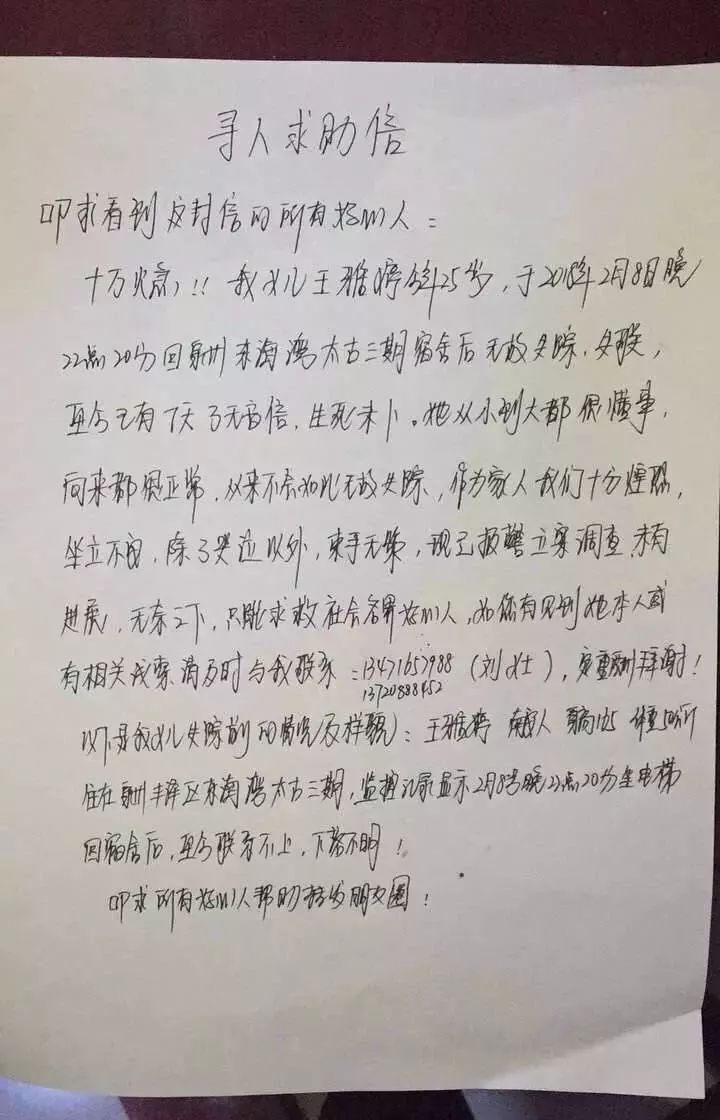 寻人求助信
叩求看到这封信的所有好心人：
十万火急！！我女儿王雅婷今年25岁，于2018年2月8日晚
22点20分回泉州东海湾太古三期宿舍后无故失踪、失联，
至今已有7天了无音信，生死未卜。她从小到大都很懂事，
向来都很正常，从来不会如此无故失踪，作为家人我们十分煌恐，
坐立不安，除了哭泣以外，束手无策，现已报警立案调查，未有
进展，无奈之下，只能求救社会各界好心人，如您有见到她本人或
有相关线索请及时与我联系：13471657988（刘女士），定重酬拜谢！
13720888452
以下是我女儿失踪前的情况及样貌：王雅婷 南安人 身高165 体重50公斤
住在泉州丰泽区东海湾太古三期，监控记录显示2月8号晚22点20分坐电梯
回宿舍后，至今联系不上，下落不明！
叩求所有好心人帮助转发朋友圈！